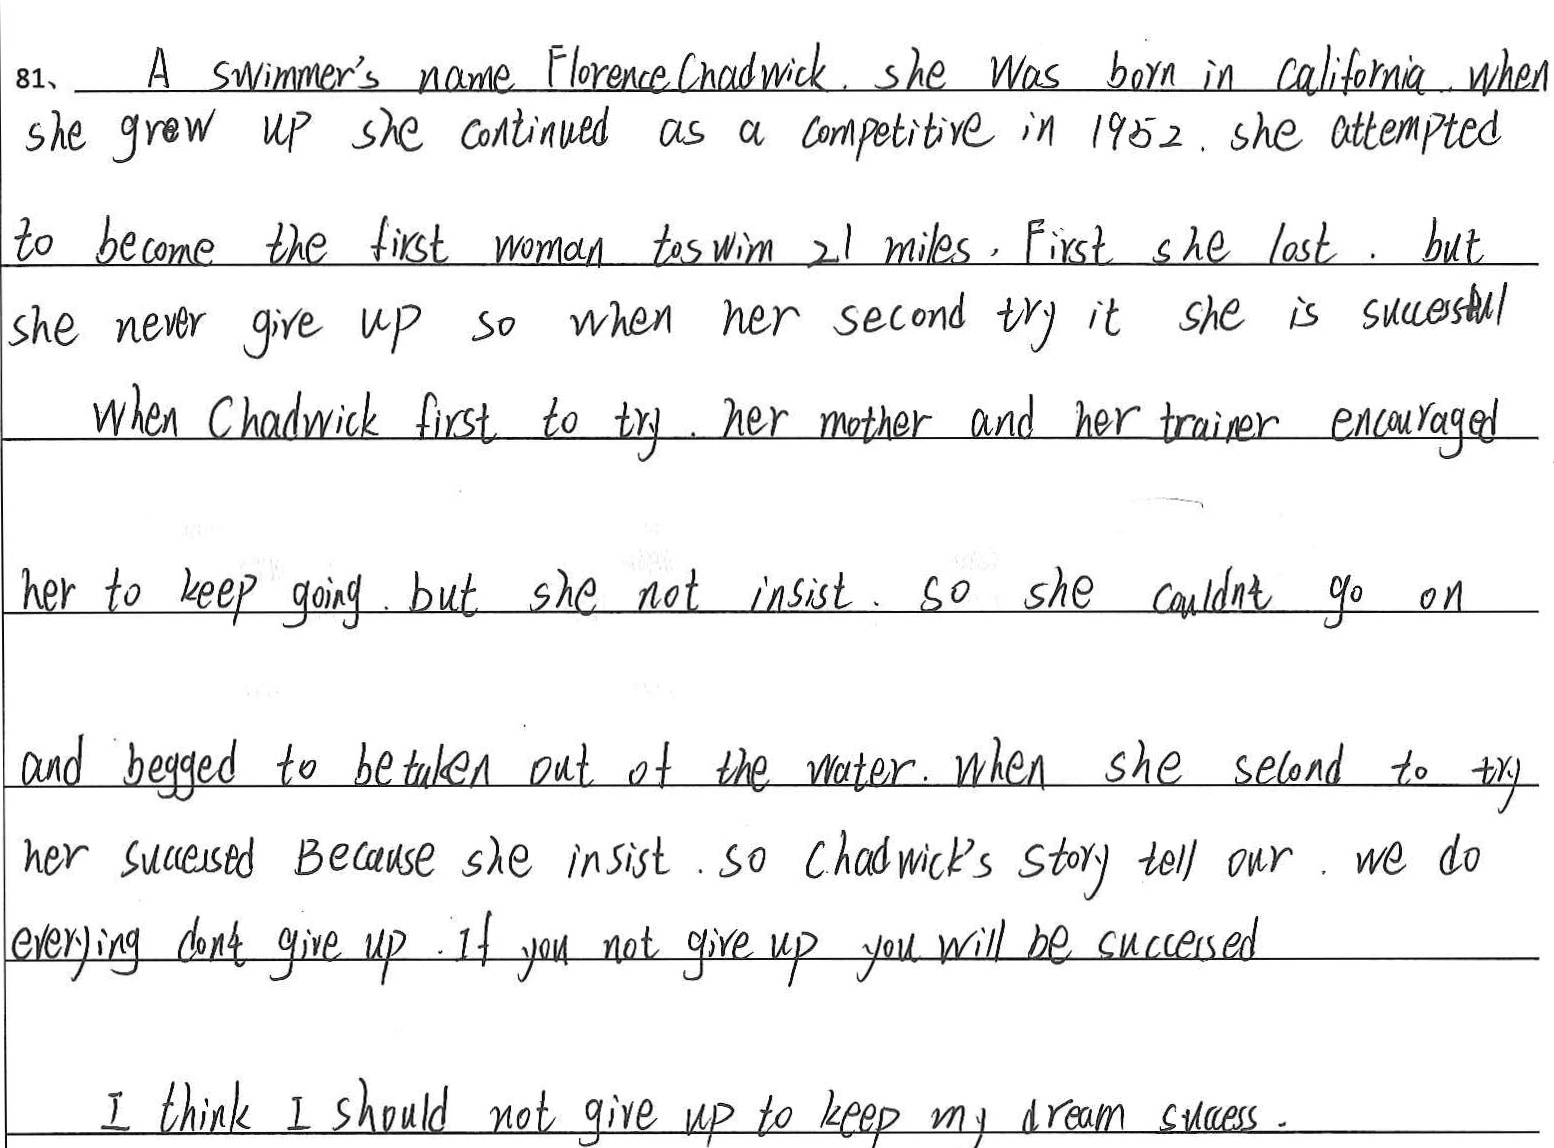 81、 A swimmer's name Florence Chadwick. she was born in California. when
she grow up she continued as a competitive in 1952. she attempted
to become the first woman to swim 21 miles. First she lost. but
she never give up so when her second try it she is succesful
when Chadwick first to try. her mother and her trainer encouraged
her to keep going. but she not insist. so she couldn't go on
and begged to be taken out of the water. when she second to try
her successed Because she insist. so Chadwick's story tell our. we do
everying don't give up. If you not give up you will be successed
I think I should not give up to keep my dream success.